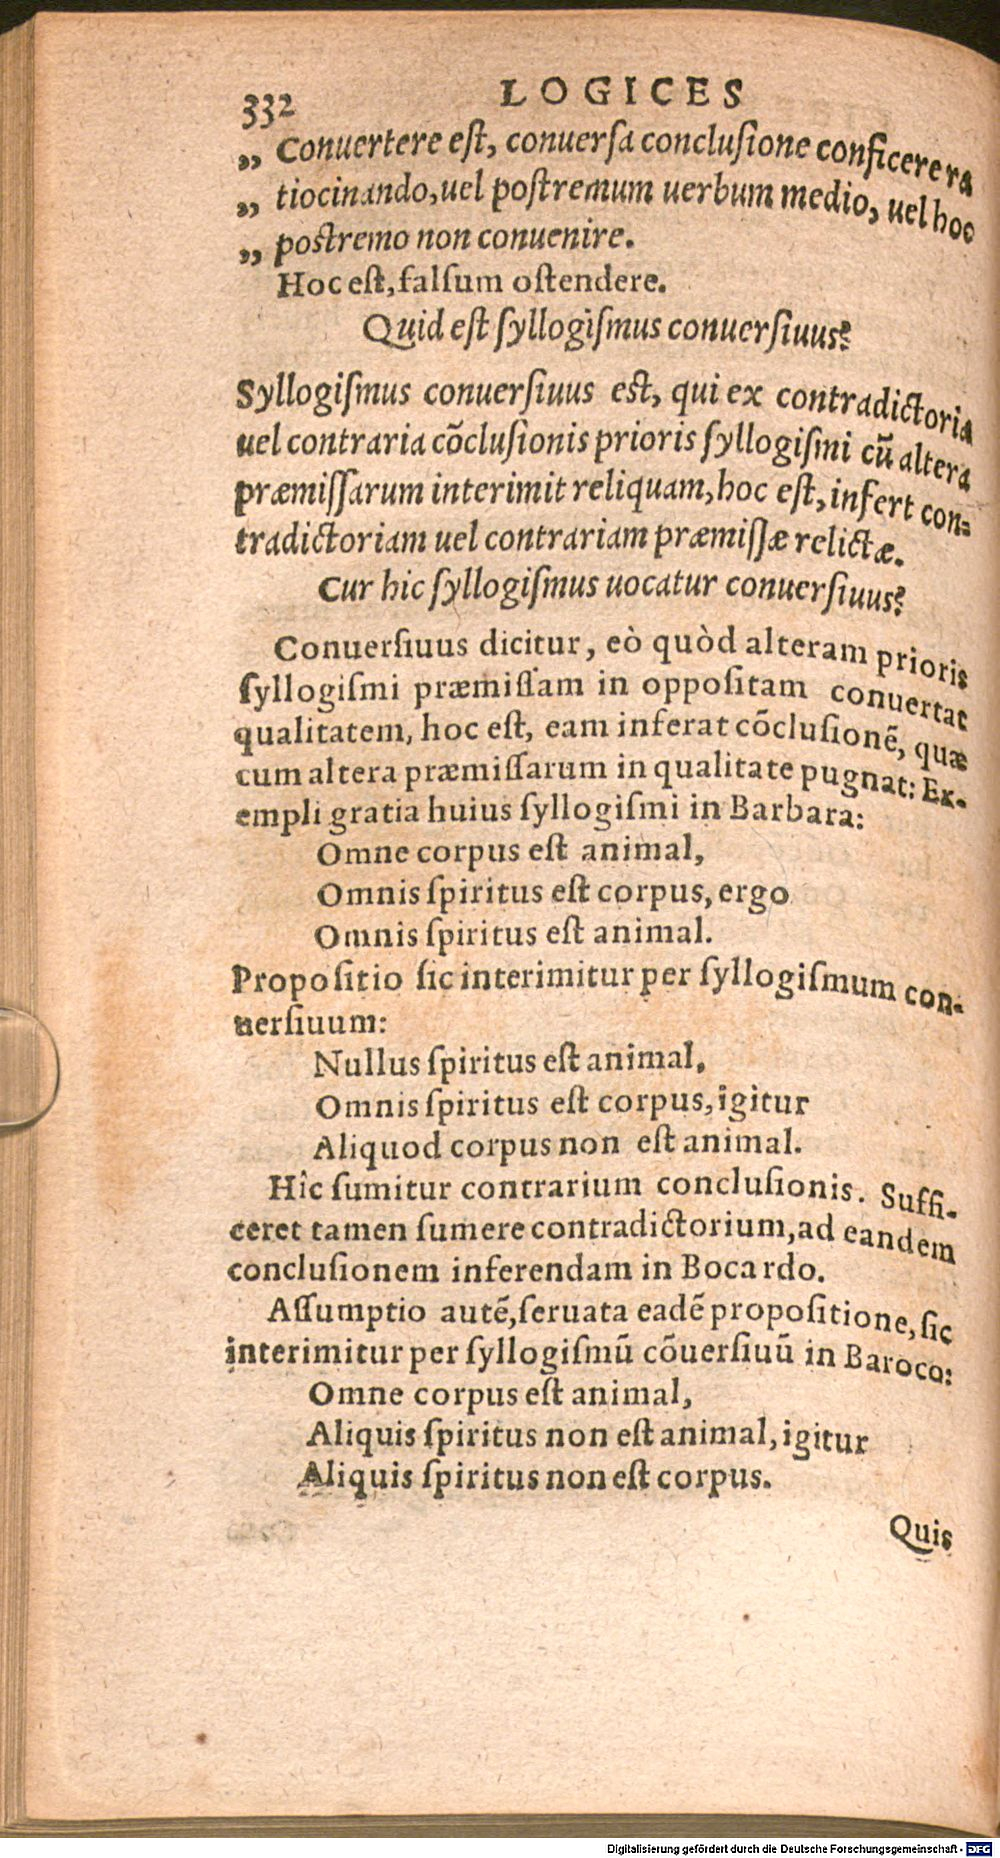 332 LOGICES
„ Conuertere eſt, conuerſa concluſione conficere ra
„ tiocinando, uel poſtremum uerbum medio, uel hoc
„ poſtremo non conuenire.
Hoc eſt, falſum oſtendere.
Quid eſt ſyllogiſmus conuerſiuus?
Syllogiſmus conuerſiuus eſt, qui ex contradictoria
uel contraria cõcluſionis prioris ſyllogiſmi cũ altera
præmiſſarum interimit reliquam, hoc eſt, infert con-
tradictoriam uel contrariam præmiſſæ relictæ.
Cur hic ſyllogiſmus uocatur conuerſiuus?
Conuerſiuus dicitur, eò quòd alteram prioris
ſyllogiſmi præmiſſam in oppoſitam conuertat
qualitatem, hoc eſt, eam inferat cõcluſionẽ, quæ
cum altera præmiſſarum in qualitate pugnat: Ex-
empli gratia huius ſyllogiſmi in Barbara:
Omne corpus eſt animal,
Omnis ſpiritus eſt corpus, ergo
Omnis ſpiritus eſt animal.
Propoſitio ſic interimitur per ſyllogiſmum con-
uerſiuum:
Nullus ſpiritus eſt animal,
Omnis ſpiritus eſt corpus, igitur
Aliquod corpus non eſt animal.
Hîc ſumitur contrarium concluſionis. Suffi-
ceret tamen ſumere contradictorium, ad eandem
concluſionem inferendam in Bocardo.
Aſſumptio autẽ, ſeruata eadẽ propoſitione, ſic
interimitur per ſyllogiſmũ cõuerſiuũ in Baroco:
Omne corpus eſt animal,
Aliquis ſpiritus non eſt animal, igitur
Aliquis ſpiritus non eſt corpus.
Quis
Digitalisierung gefördert durch die Deutsche Forschungsgemeinschaft - DFG